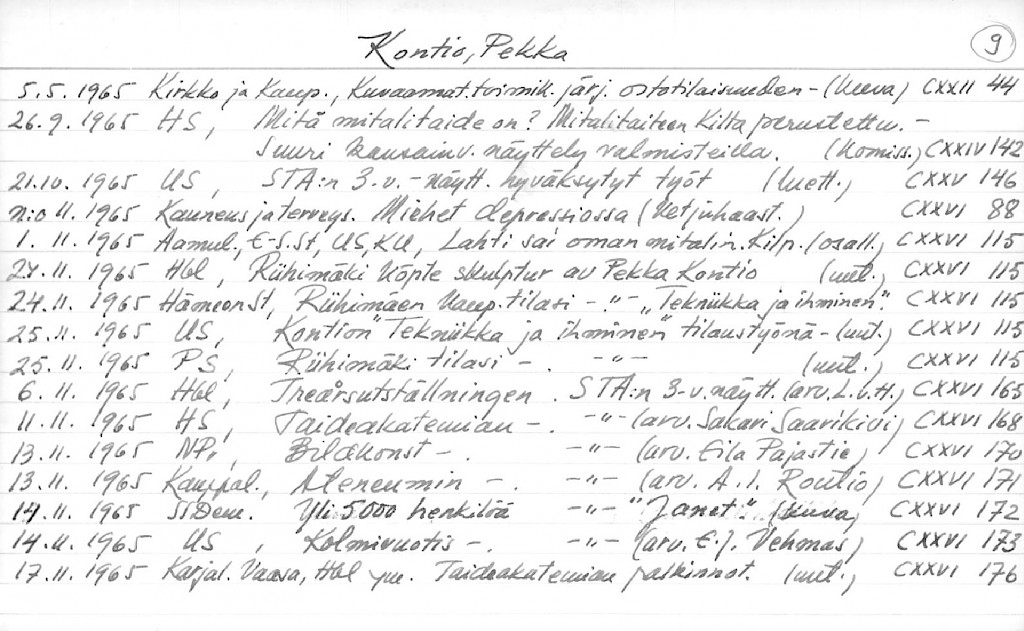 Kontio, Pekka 9
5.5. 1965 Kirkko ja Kaup., Kuvaamat.toimik. järj. ostotilaisuuden - (kuva) CXXII 44
26.9. 1965 HS, Mitä mitalitaide on? Mitalitaiteen Kilta perustettu. -
Suuri kansainv. näyttely valmisteilla. (Komiss.) CXXIV 142
21.10. 1965 US, STA:n 3-v.-näytt. hyväksytyt työt (luett.) CXXV 146
n:o 11. 1965 Kauneus ja terveys. Miehet depressiossa (Ketjuhaast.) CXXVI 88
1. 11. 1965 Aamul., E-S.St, US, KU, Lahti sai oman mitalin. Kilp. (osall.) CXXVI 115
24. 11. 1965 Hbl, Riihimäki köpte skulptur av Pekka Kontio (uut.) CXXVI 115
24. 11. 1965 HämeenSt, Riihimäen kaup. tilasi - " - "Tekniikka ja ihminen". CXXVI 115
25. 11. 1965 US, Kontion "Tekniikka ja ihminen" tilaustyönä - (uut.) CXXVI 115
25. 11. 1965 PS, Riihimäki tilasi - . - " - (uut.) CXXVI 115
6. 11. 1965 Hbl, Treårsutställningen . STA:n 3-v.näytt. (arv. L.v.H.) CXXVI 165
11. 11. 1965 HS, Taideakatemian - . - " - (arv. Sakari Saarikivi) CXXVI 168
13. 11. 1965 NP., Bildkonst - . - " - (arv. Eila Pajastie) CXXVI 170
13. 11. 1965 Kauppal., Ateneumin - . - " - (arv. A. I. Routio) CXXVI 171
14. 11. 1965 SSDem. Yli 5000 henkilöä - " - "Janet." (kuva) CXXVI 172
14. 11. 1965 US, Kolmivuotis - . - " - (arv. E. J. Vehmas) CXXVI 173
17. 11. 1965 Karjal. Vaasa, Hbl ym. Taideakatemian palkinnot. (uut.) CXXVI 176